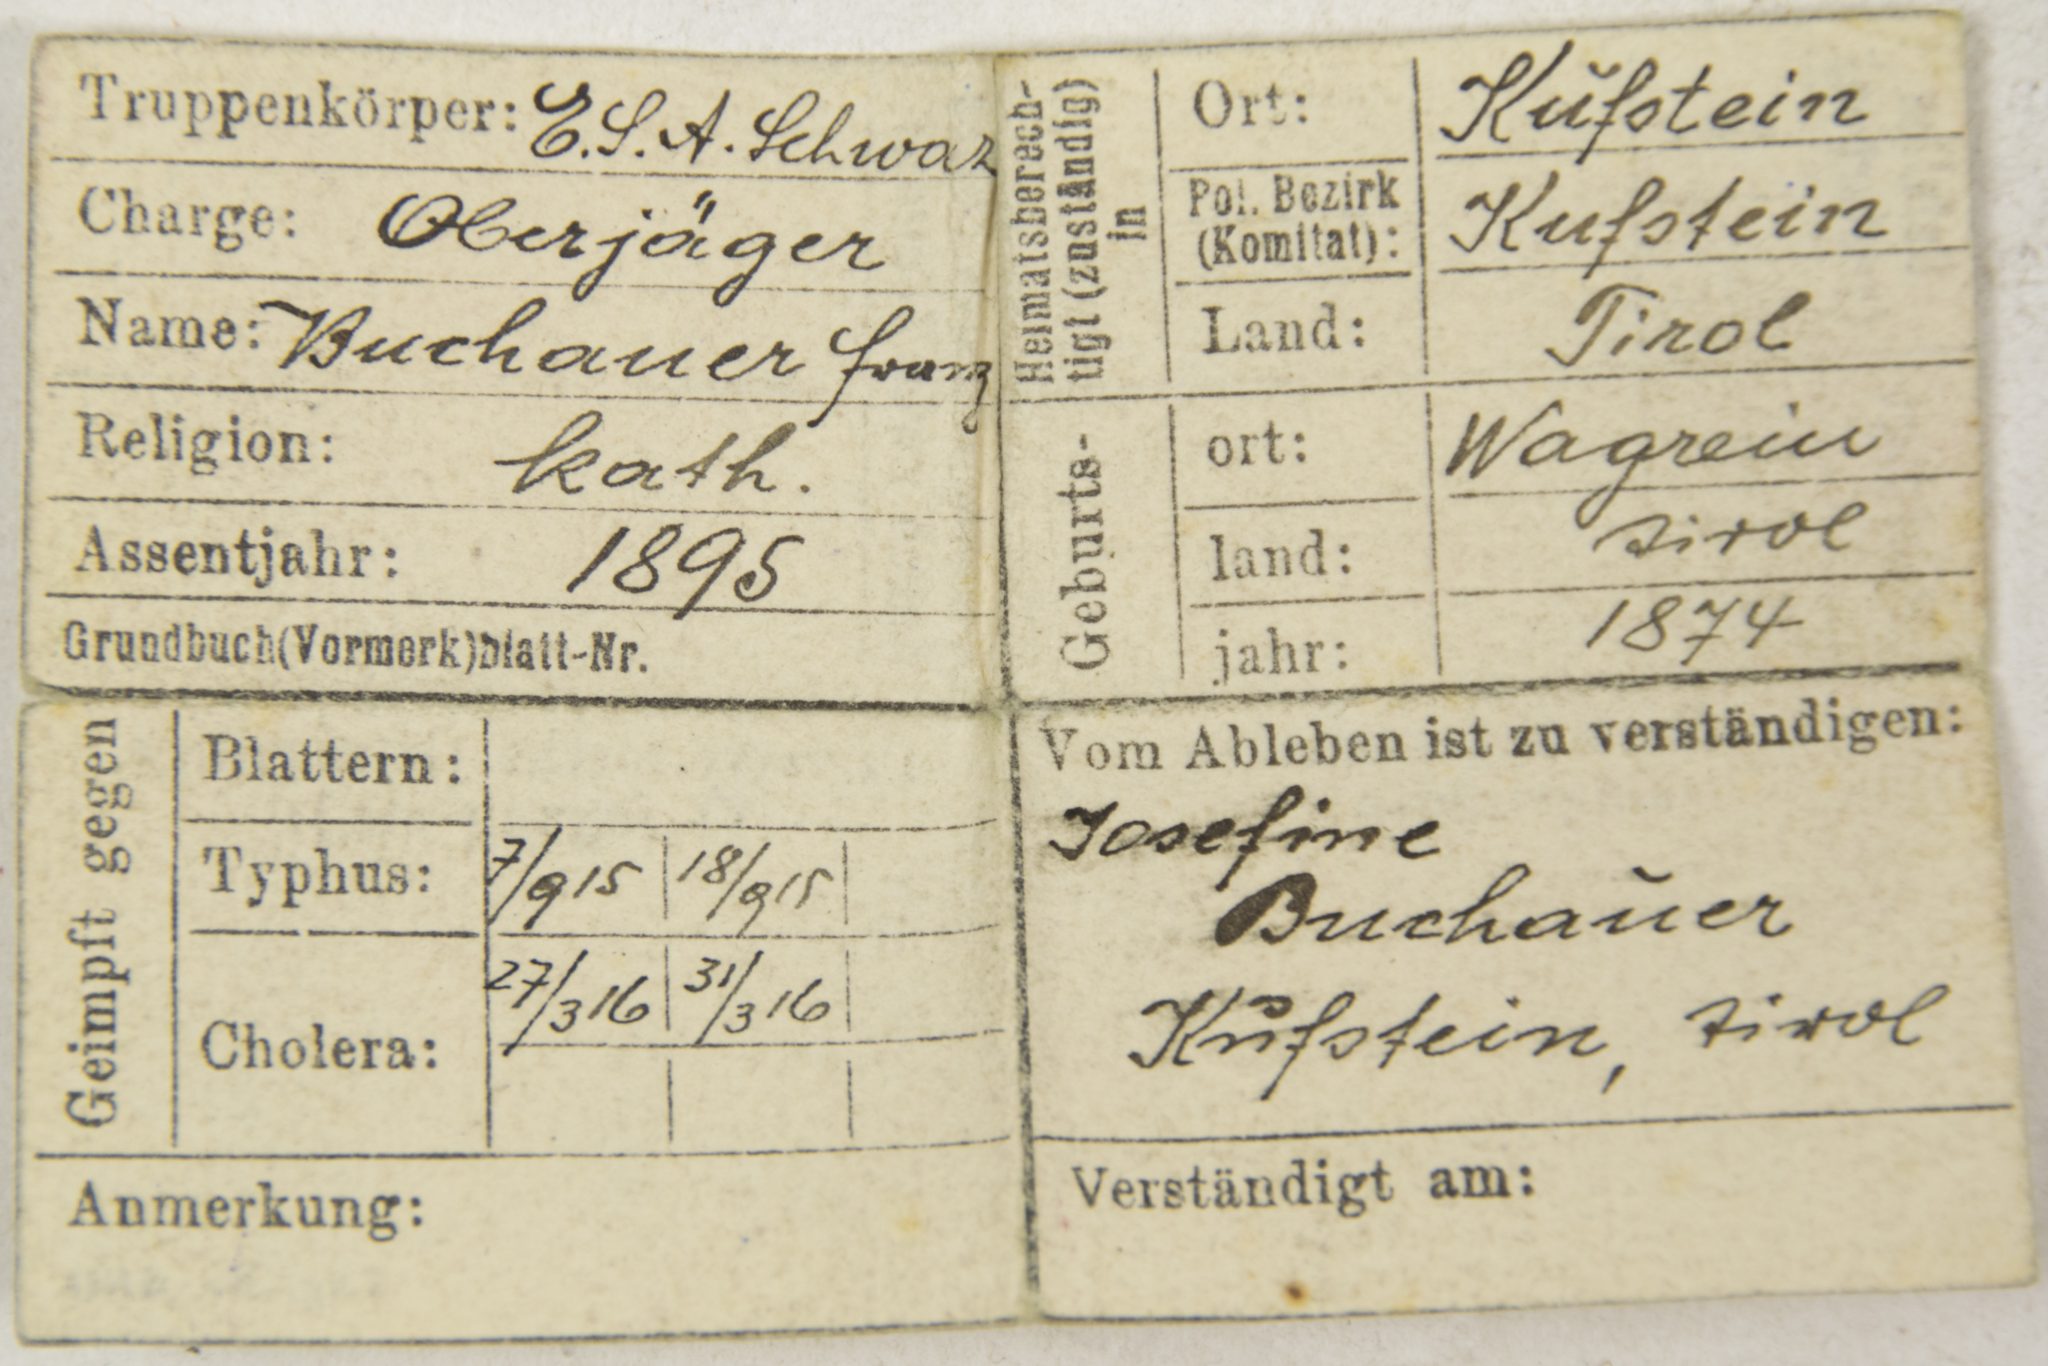 Truppenkörper: E.S.A. Schwaz
Charge: Oberjäger
Name: Buchauer Franz
Religion: kath.
Assentjahr: 1895
Grundbuch(Vormerk)blatt-Nr.
Heimatsberech-
tigt (zuständig)
in
Ort: Kufstein
Pol. Bezirk
(Komitat): Kufstein
Land: Tirol
Geburts-
ort: Wagrein
land: Tirol
jahr: 1874
Geimpft gegen
Blattern:
Typhus: 7/9 15 18/9 15
Cholera: 27/3 16 31/3 16
Anmerkung:
Vom Ableben ist zu verständigen:
Josefine
Buchauer
Kufstein, Tirol
Verständigt am: